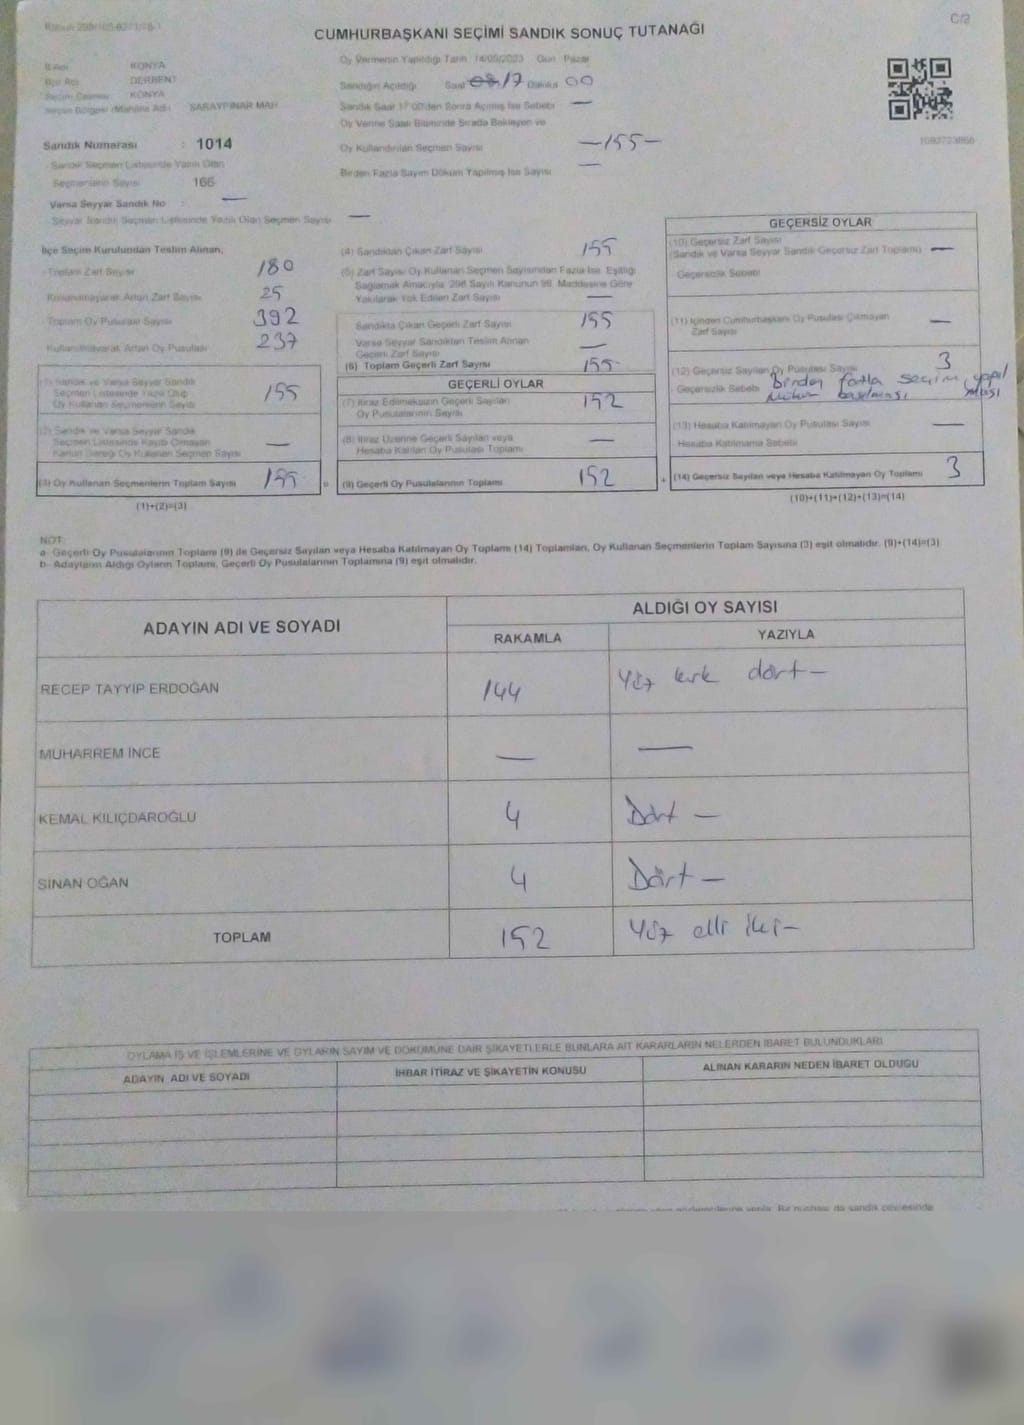 C/2
CUMHURBAŞKANI SEÇİMİ SANDIK SONUÇ TUTANAĞI
İli KONYA
İlçe Adı DERBENT
Seçim Çevresi KONYA
Seçim Bölgesi (Mahalle Adı) SARAYPINAR MAH
Sandık Numarası : 1014
Sandık Seçmen Listesinde Yazılı Olan
Seçmenlerin Sayısı 166
Varsa Seyyar Sandık No : —
Seyyar Sandık Seçmen Listesinde Yazılı Olan Seçmen Sayısı —
Oy Vermenin Yapıldığı Tarih 14/05/2023 Gün Pazar
Sandığın Açıldığı Saat 17 Dakika 00
Sandık Saat 17:00'den Sonra Açılmış İse Sebebi —
Oy Verme Saati Bitiminde Sırada Bekleyen ve
Oy Kullandırılan Seçmen Sayısı —155—
Birden Fazla Sayım Döküm Yapılmış İse Sayısı —
1093723866
İlçe Seçim Kurulundan Teslim Alınan;
Toplam Zarf Sayısı 180
Kullanılmayarak Artan Zarf Sayısı 25
Toplam Oy Pusulası Sayısı 392
Kullanılmayarak Artan Oy Pusulası 237
(1) Sandık ve Varsa Seyyar Sandık
Seçmen Listesinde Yazılı Olup
Oy Kullanan Seçmenlerin Sayısı 155
(2) Sandık ve Varsa Seyyar Sandık
Seçmen Listesinde Kayıtlı Olmayan
Kanun Gereği Oy Kullanan Seçmen Sayısı —
(3) Oy Kullanan Seçmenlerin Toplam Sayısı 155
(1)+(2)=(3)
(4) Sandıktan Çıkan Zarf Sayısı 155
(5) Zarf Sayısı Oy Kullanan Seçmen Sayısından Fazla İse, Eşitliği
Sağlamak Amacıyla, 298 Sayılı Kanunun 98. Maddesine Göre
Yakılarak Yok Edilen Zarf Sayısı —
Sandıkta Çıkan Geçerli Zarf Sayısı 155
Varsa Seyyar Sandıktan Teslim Alınan
Geçerli Zarf Sayısı —
(6) Toplam Geçerli Zarf Sayısı 155
GEÇERLİ OYLAR
(7) İtiraz Edilmeksizin Geçerli Sayılan
Oy Pusulalarının Sayısı 152
(8) İtiraz Üzerine Geçerli Sayılan veya
Hesaba Katılan Oy Pusulası Toplamı —
(9) Geçerli Oy Pusulalarının Toplamı 152
GEÇERSİZ OYLAR
(10) Geçersiz Zarf Sayısı
(Sandık ve Varsa Seyyar Sandık Geçersiz Zarf Toplamı) —
Geçersizlik Sebebi
(11) İçinden Cumhurbaşkanı Oy Pusulası Çıkmayan
Zarf Sayısı —
(12) Geçersiz Sayılan Oy Pusulası Sayısı 3
Geçersizlik Sebebi Birden fazla seçim yapılması
mühür basılması
(13) Hesaba Katılmayan Oy Pusulası Sayısı —
Hesaba Katılmama Sebebi
(14) Geçersiz Sayılan veya Hesaba Katılmayan Oy Toplamı 3
(10)+(11)+(12)+(13)=(14)
NOT:
a- Geçerli Oy Pusulalarının Toplamı (9) ile Geçersiz Sayılan veya Hesaba Katılmayan Oy Toplamı (14) Toplamları, Oy Kullanan Seçmenlerin Toplam Sayısına (3) eşit olmalıdır. (9)+(14)=(3)
b- Adayların Aldığı Oyların Toplamı, Geçerli Oy Pusulalarının Toplamına (9) eşit olmalıdır.
ADAYIN ADI VE SOYADI
ALDIĞI OY SAYISI
RAKAMLA YAZIYLA
RECEP TAYYIP ERDOĞAN 144 Yüz kırk dört —
MUHARREM İNCE — —
KEMAL KILIÇDAROĞLU 4 Dört —
SİNAN OĞAN 4 Dört —
TOPLAM 152 Yüz elli iki —
OYLAMA İŞ VE İŞLEMLERİNE VE OYLARIN SAYIM VE DÖKÜMÜNE DAİR ŞİKAYETLERLE BUNLARA AİT KARARLARIN NELERDEN İBARET BULUNDUKLARI
ADAYIN ADI VE SOYADI İHBAR İTİRAZ VE ŞİKAYETİN KONUSU ALINAN KARARIN NEDEN İBARET OLDUĞU